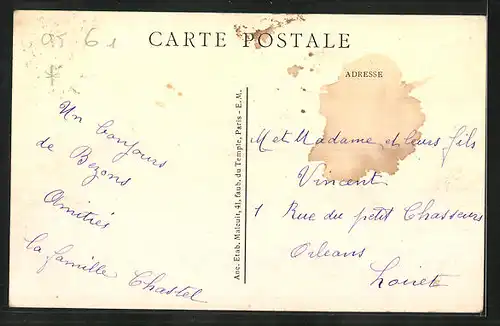 95 61
CARTE POSTALE
ADRESSE
Un bonjours
de Bezons
Amitiés
la famille Chastel
Anc. Etab. Malcuit, 41, faub. du Temple, Paris - E. M.
M et Madame et leurs fils
Vincent
1 Rue du petit Chasseurs
Orleans
Loiret